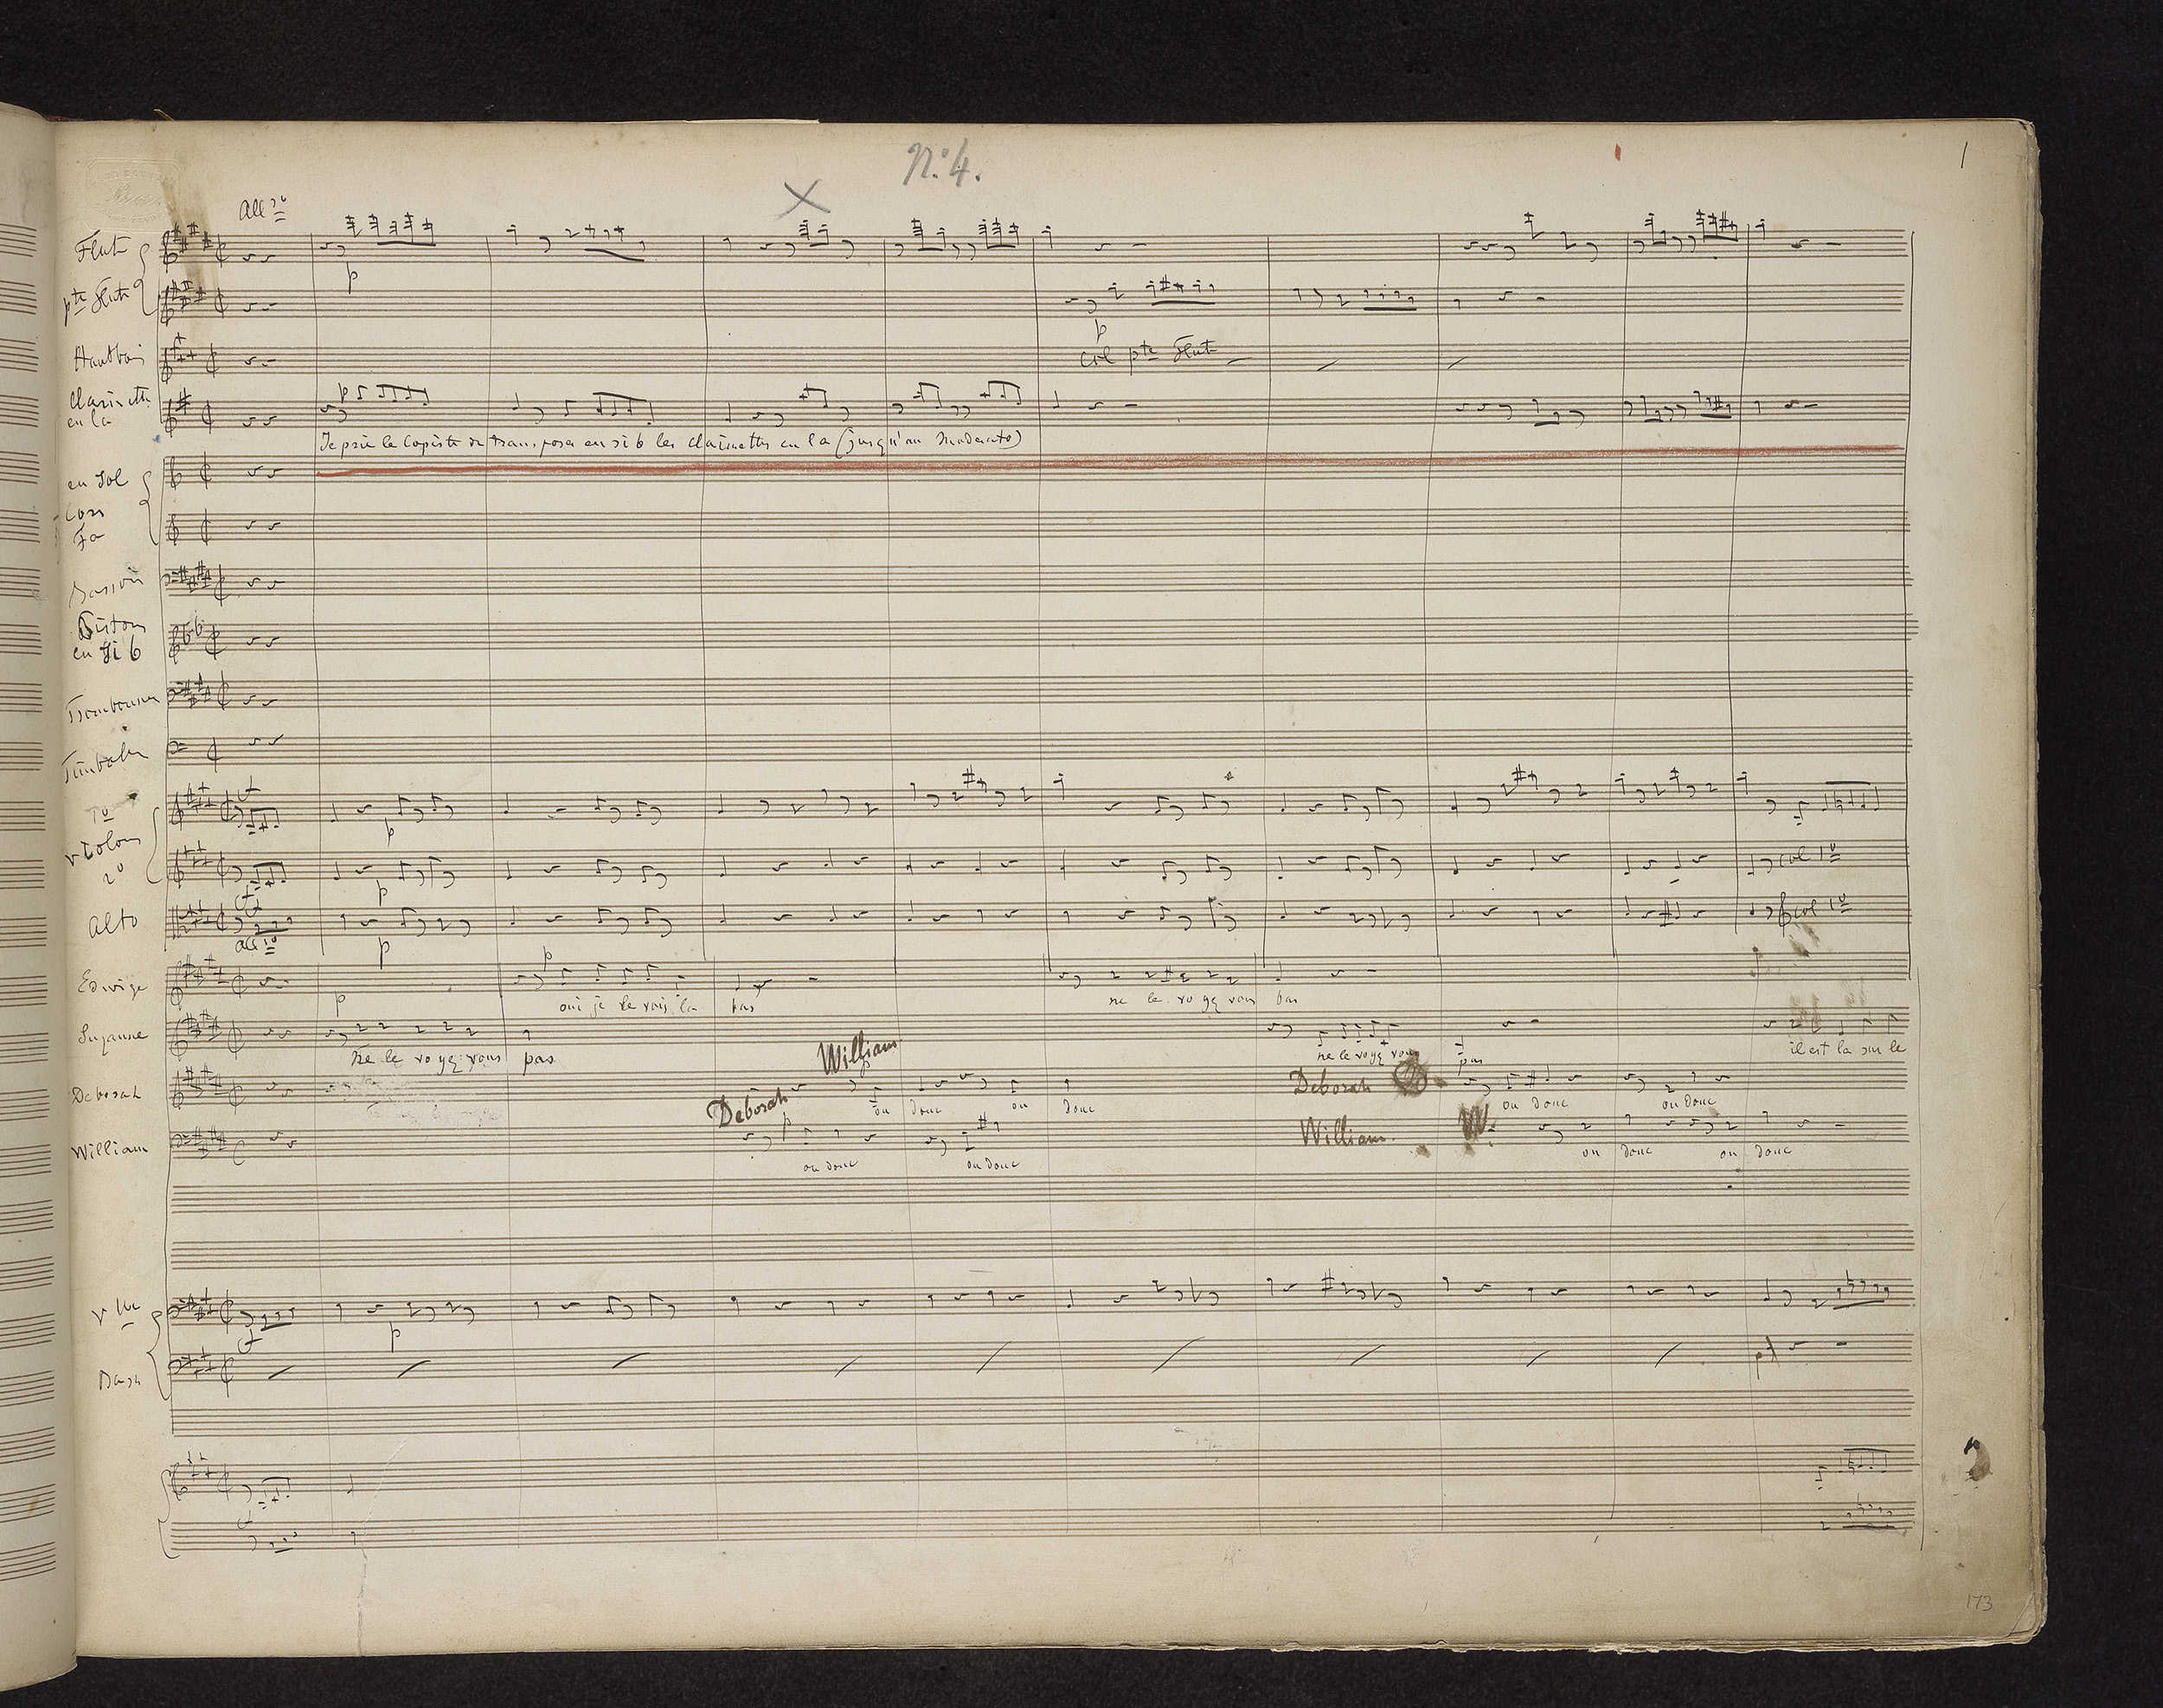 N.º 4.
1
All.º
Flute
p
pte Flute
p
Hautbois
Col pte Flute
Clarinettes
en la
p
Je prie le Copiste de transposer en si b les clarinettes en la (jusqu'au Moderato)
en sol
Cors
Fa
Basson
Pistons
en Si b
Trombones
Timbales
1º
p
Violons
2º
p
col 1º
Alto
p
col 1º
All.º
Edwige
p
oui je le vois la pas
ne le voyez vous pas
Suzanne
p
ne le voyez vous pas
ne le voyez vous pas
il est la sur le
William
Deborah
Deborah
ou donc ou donc
Deborah
ou donc ou donc
William
p
ou donc ou donc
William.
W.
ou donc ou donc
Vlle
p
Basse
173